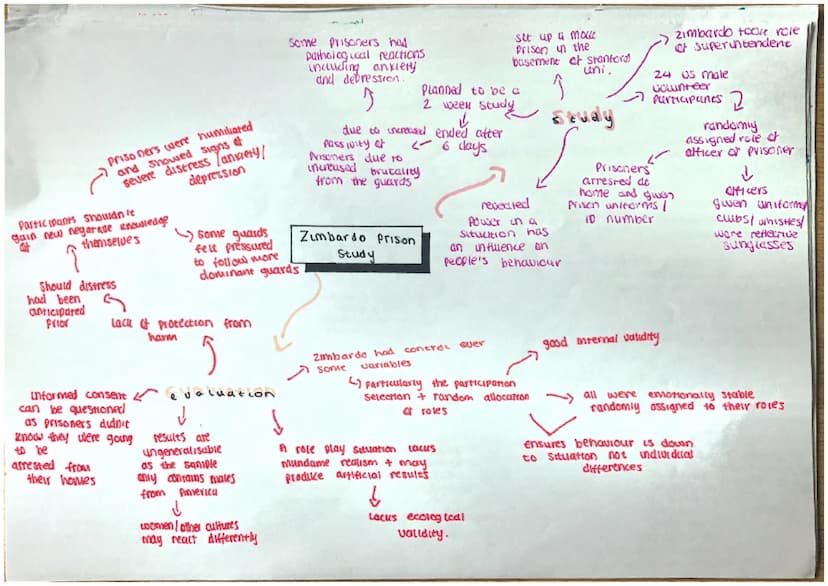 Zimbardo Prison
Study
Study
set up a mock
prison in the
basement of stanford
uni.
Zimbardo took role
of superintendent
24 US male
volunteer
participants
randomly
assigned role of
officer or prisoner
officers
given uniform/
clubs/ whistles/
wore reflective
sunglasses
Prisoners
arrested at
home and given
prison uniforms/
ID number
revealed
power in a
situation has
an influence on
people's behaviour
planned to be a
2 week study
ended after
6 days
due to increased
passivity of
prisoners due to
increased brutality
from the guards
some prisoners had
pathological reactions
including anxiety
and depression.
evaluation
Zimbardo had control over
some variables
particularly the participation
selection + random allocation
of roles
good internal validity
all were emotionally stable
randomly assigned to their roles
ensures behaviour is down
to situation not individual
differences
A role play situation lacks
mundame realism + may
produce artificial results
lacks ecological
validity.
results are
ungeneralisable
as the sample
only contains males
from America
women/other cultures
may react differently
informed consent
can be questioned
as prisoners didn't
know they were going
to be
arrested from
their homes
lack of protection from
harm
should distress
had been
anticipated
prior
participants shouldn't
gain new negative knowledge
of themselves
prisoners were humiliated
and showed signs of
severe distress/anxiety/
depression
some guards
felt pressured
to follow more
dominant guards